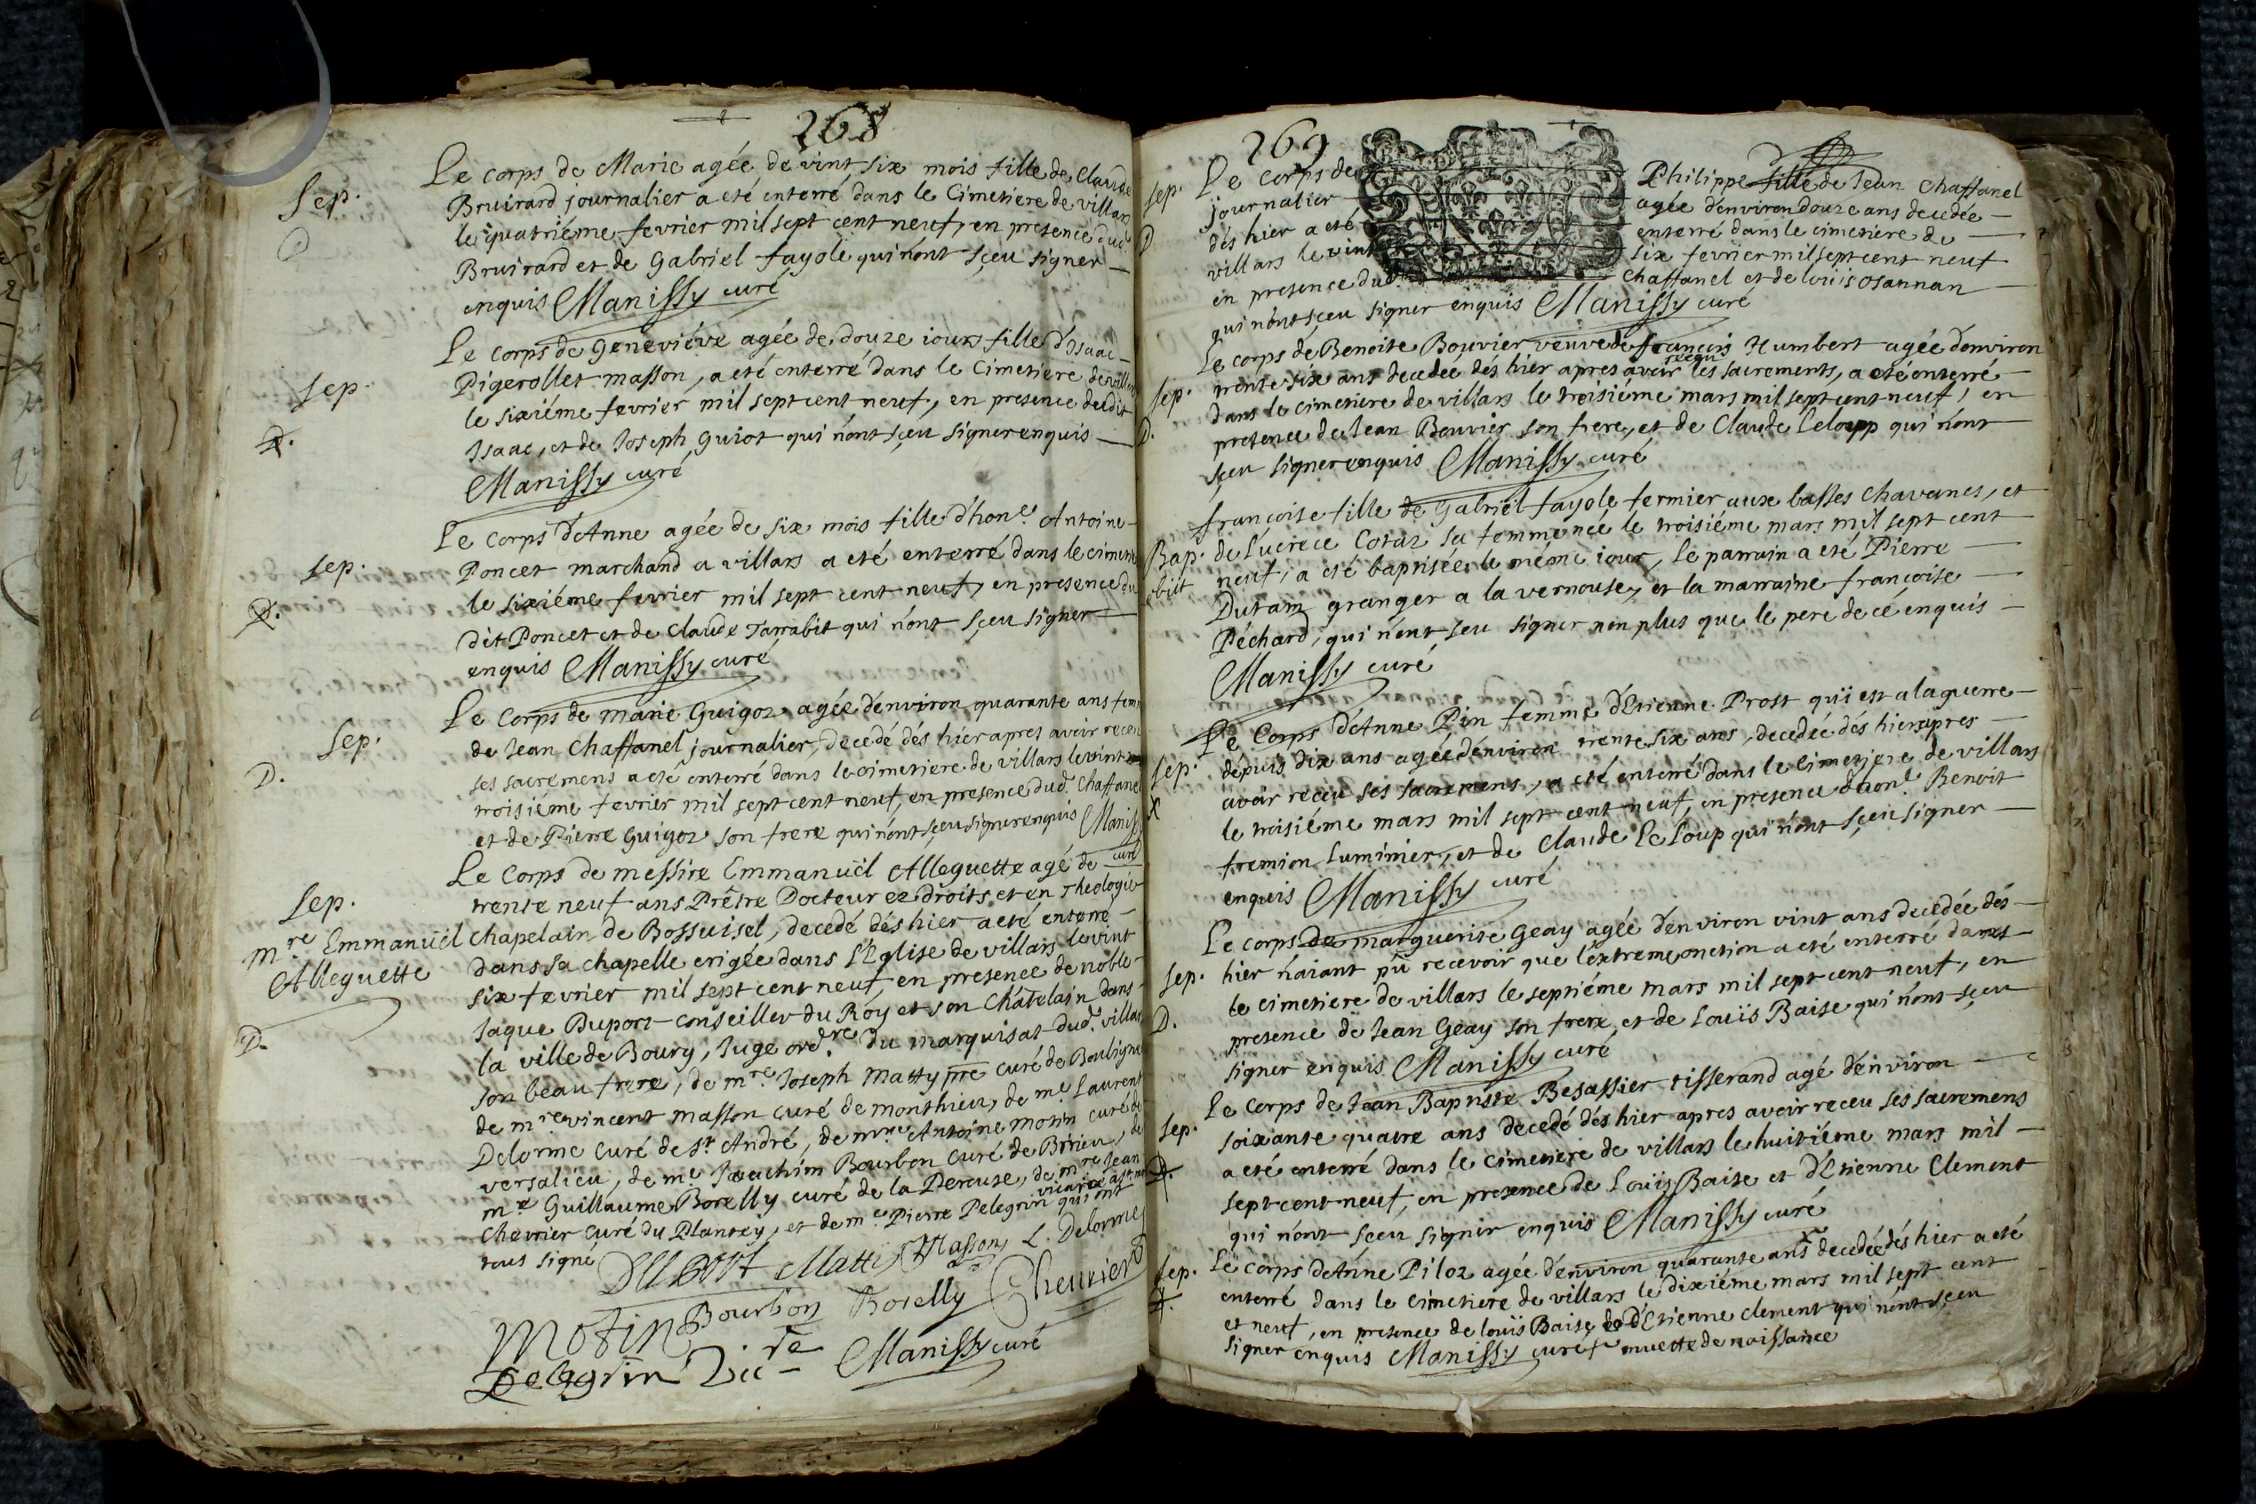 268
Sep.
Le corps de Marie agée de vint six mois fille de Claude
Bruirard journalier a eté enterré dans le Cimetiere de villars
le quatriéme fevrier mil sept cent neuf, en presence dud.
Bruirard et de Gabriel fayole qui n'ont sçeu signer
enquis Manissy curé
Sep.
D.
Le corps de Geneviéve agée de douze iours fille d'Isaac
Pigerollet masson, a eté enterré dans le Cimetiere de villars
le sixiéme fevrier mil sept cent neuf, en presence dudit
Isaac, et de Joseph Guiot qui n'ont sçeu signer enquis
Manissy curé
Sep.
D.
Le corps d'Anne agée de six mois fille d'hon.e Antoine
Poncet marchand a villars a eté enterré dans le cimetiere
le sixiéme fevrier mil sept cent neuf, en presence du
dit Poncet et de Claude Tarrabit qui n'ont sçeu signer
enquis Manissy curé
Sep.
D.
Le corps de marie Guigoz agée d'environ quarante ans fem
de Jean Chaffanel journalier, decedé dés hier apres avoir receu
ses sacremens a eté enterré dans le cimetiere de villars le vint
troisiéme fevrier mil sept cent neuf, en presence dud. Chaffanel
et de Pierre Guigoz son frere qui n'ont sçeu signer enquis Manissy
curé
Sep.
mre Emmanüel
Alleguette
D.
Le Corps de messire Emmanüel Alleguette agé de
trente neuf ans Prêtre Docteur ez droits et en Theologie
Chapelain de Bossuisel, decedé dés hier a eté enterré
dans sa chapelle erigée dans l'Eglise de villars le vint
six fevrier mil sept cent neuf, en presence de noble
Jaque Duport conseiller du Roy et son Châtelain dans
la ville de Bourg, Juge ordre du marquisat dud. villars
son beau frere, de mre Joseph Matty pre curé de Bouligneu
de mre vincent masson curé de monthieu, de me Laurent
Delorme curé de St André, de mre Antoine motin curé de
versalieu, de me Joachim Bourbon curé de Birieu, de
me Guillaume Borelly curé de la Pereuse, de mre Jean
Chevrier curé du Plantey, et de me Pierre Pelegrin vicaire qui ont
tous signé
Duport Matti Masson L. Delorme
Motin Bourbon Borelly Chevrier
Pelegrin Vicre Manissy curé
269
Sep.
D
Le corps de Philippe fille de Jean Chaffanel
journalier agée d'environ douze ans decedée
dés hier a eté enterré dans le cimetiere de
villars le vint six fevrier mil sept cent neuf
en presence dud. Chaffanel et de Loüis Osannan
qui n'ont sçeu signer enquis Manissy curé
Sep.
D.
Le corps de Benoite Bouvier veuve de françois Humbert agée d'environ
trente six ans decedée dés hier apres avoir receu les sacrements, a eté enterré
dans le cimetiere de villars le troisiéme mars mil sept cent neuf, en
presence de Jean Bouvier son frere, et de Claude Leloupp qui n'ont
sçeu signer enquis Manissy curé
Bap.
obiit
françoise fille de Gabriel fayole fermier aux basses Chavanes, et
de Lucrece Cotaz sa femme née le troisiéme mars mil sept cent
neuf, a eté baptisée le méme iour, le parrain a eté Pierre
Dutam granger a la vernouse, et la marraine françoise
Péchard, qui n'ont sçeu signer non plus que le pere de ce enquis
Manissy curé
Sep.
X
Le Corps d'Anne Pin femme d'Etienne Prost qui est a la guerre
depuis dix ans agée d'environ trente six ans, decedée dés hier apres
avoir receu ses sacremens, a eté enterré dans le Cimetiere de villars
le troisiéme mars mil sept cent neuf, en presence d'hon.e Benoit
fremion luminier, et de Claude Le Loup qui n'ont sçeu signer
enquis Manissy curé
Sep.
D.
Le corps de marguerite Geay agée d'environ vint ans decedée dés
hier n'aiant pû recevoir que l'extreme onction a eté enterré dans
le cimetiere de villars le septiéme mars mil sept cent neuf, en
presence de Jean Geay son frere, et de Loüis Baise qui n'ont sçeu
signer enquis Manissy curé
Sep.
D.
Le corps de Jean Baptiste Besassier tisserand agé d'environ
soixante quatre ans decedé dés hier apres avoir receu ses sacremens
a eté enterré dans le cimetiere de villars le huitiéme mars mil
sept cent neuf, en presence de Loüis Baise et d'Etienne Clement
qui n'ont sçeu signer enquis Manissy curé
Sep.
D.
Le corps d'Anne Piloz agée d'environ quarante ans decedée dés hier a eté
enterré dans le Cimetiere de villars le dixiéme mars mil sept cent
et neuf, en presence de loüis Baise et d'Etienne Clement qui n'ont sçeu
signer enquis Manissy curé muette de naissance